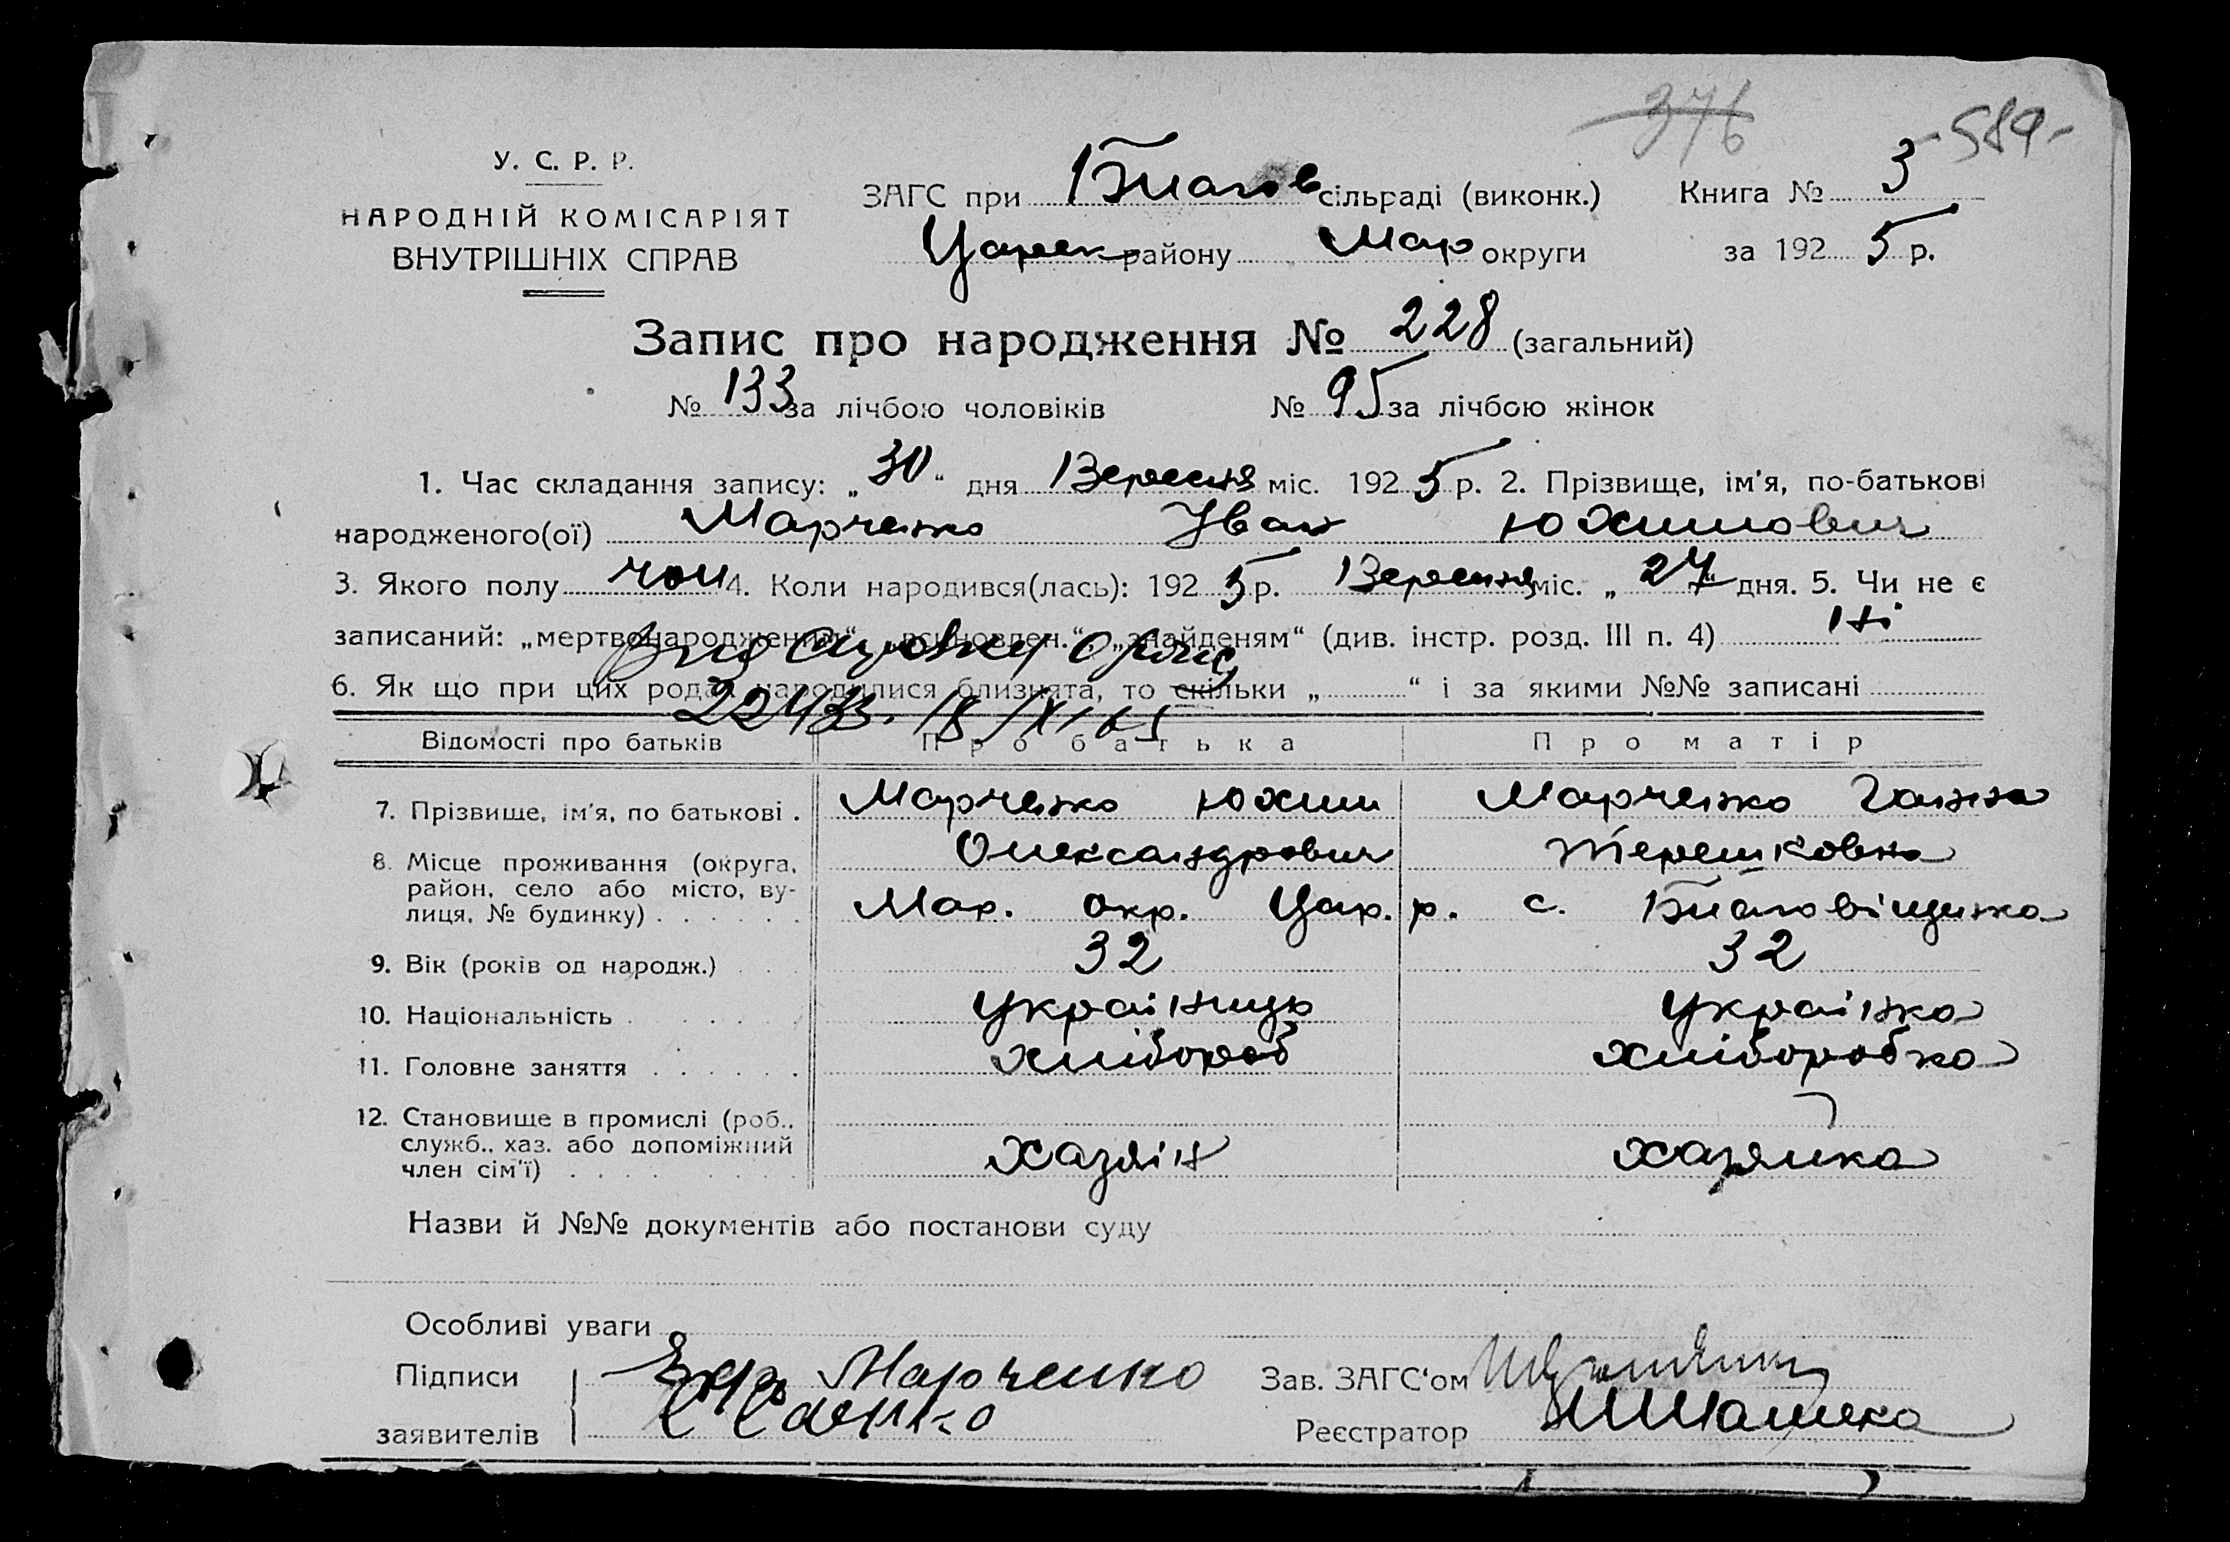 376 -589-
У. С. Р. Р.
НАРОДНІЙ КОМІСАРІЯТ
ВНУТРІШНІХ СПРАВ
ЗАГС при Благов сільраді (виконк.) Книга № 3
Царек району Мар округи за 1925 р.
Запис про народження № 228 (загальний)
№ 133 за лічбою чоловіків № 95 за лічбою жінок
1. Час складання запису: „30“ дня Вересня міс. 1925 р. 2. Прізвище, ім'я, по-батькові
народженого(ої) Марченко Іван Юхимович
3. Якого полу чол 4. Коли народився(лась): 1925 р. Вересня міс. „27“ дня. 5. Чи не є
записаний: „мертвонародженим“, „всиновлен.“, „знайденям“ (див. інстр. розд. III п. 4) Ні
6. Як що при цих родах народилися близнята, то скільки „ “ і за якими №№ записані
18/XI 65
Відомості про батьків Про батька Про матір
7. Прізвище, ім'я, по батькові . Марченко Юхим Марченко Ганна
Олександрович Терешковна
8. Місце проживання (округа, район, село або місто, вулиця, № будинку) Мар. окр. Цар. р. с. Благовіщенка
9. Вік (років од народж.) 32 32
10. Національність Українець Українка
11. Головне заняття хлібороб хліборобка
12. Становище в промислі (роб., служб., хаз. або допоміжний член сім'ї) хазяїн хазяйка
Назви й №№ документів або постанови суду
Особливі уваги
Підписи Марченко Зав. ЗАГС'ом
заявителів Реєстратор